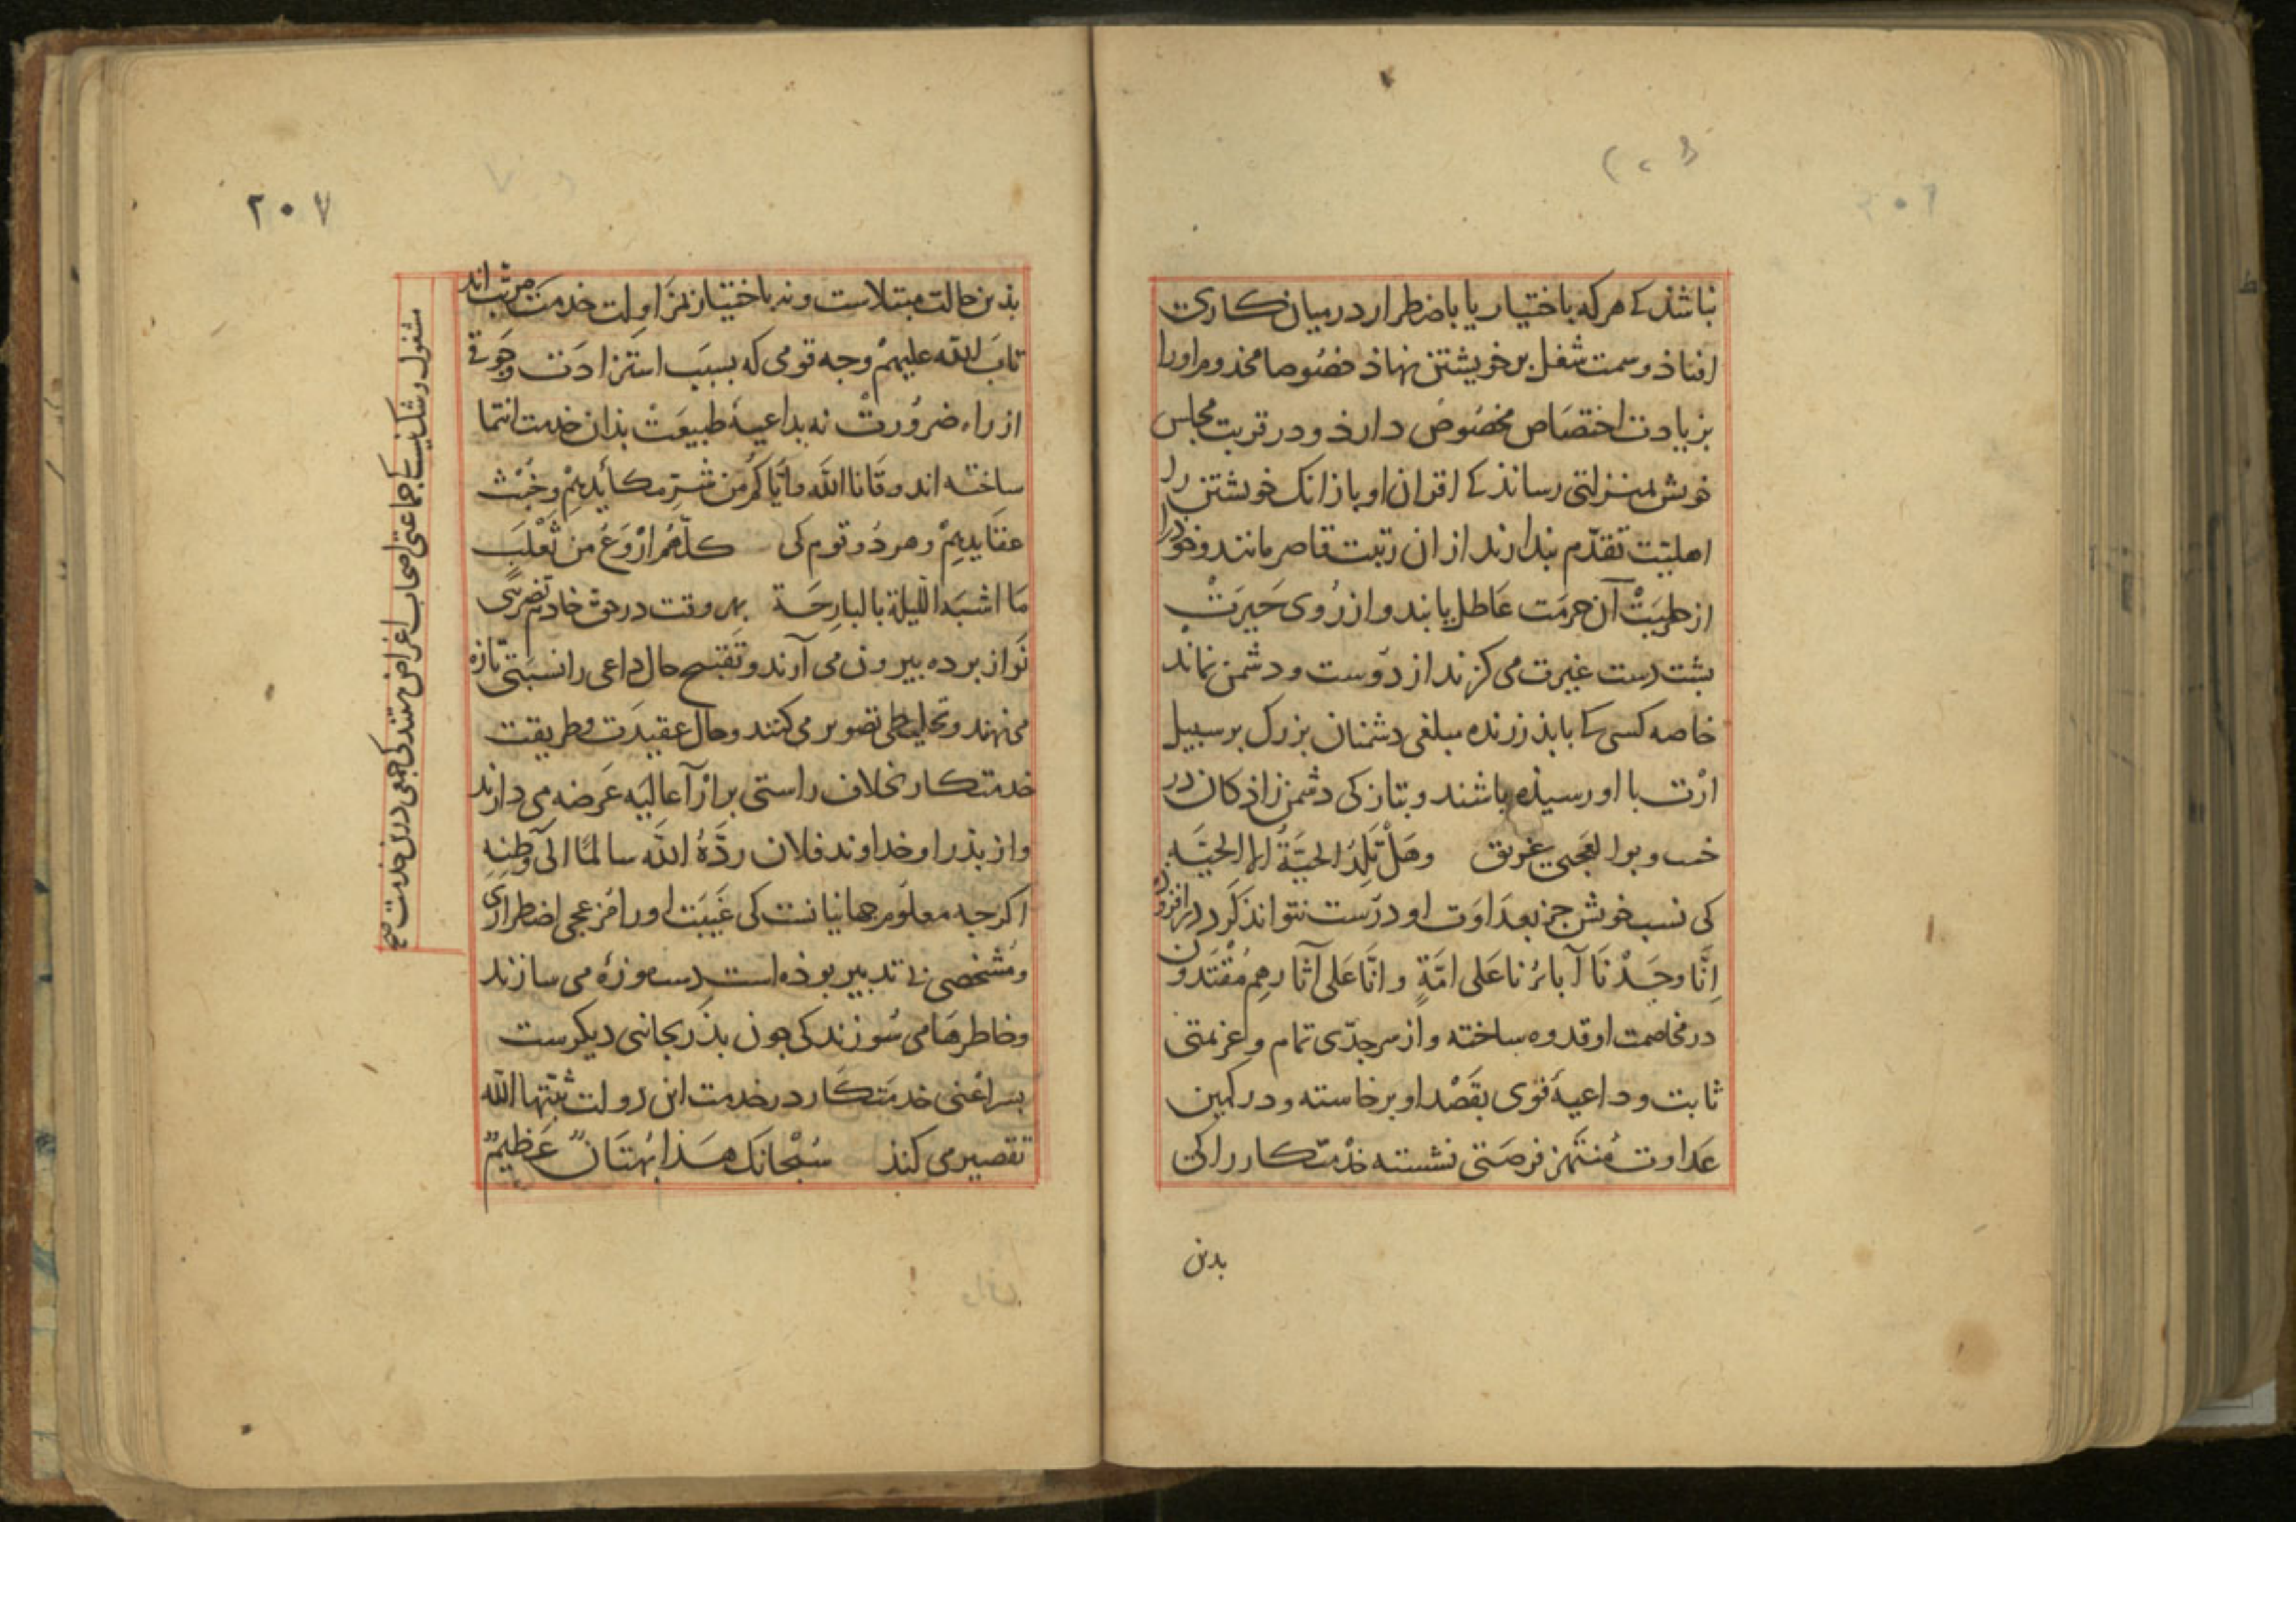 نباشذ کے هرکه باختیار یا باضطرار در میان کاری
افتاذ و سمت شغل بر خویشتن نهاذ خصوصا مخدوم او را
بزیادت اختصاص مخصوص دارذ و در قربت مجلس
خویش بمنزلتی رساند کے اقران او باز انک خویشتن را
اهلیت تقدّم پندارند از ان رتبت قاصر مانند و خود را
از حلیت آن حرمت عاطل یابند و از روی حیرت
پشت دست غیرت می کزند از دوست و دشمن نماند
خاصه کسی کے با پذر زنده مبلغی دشمنان بزرک بر سبیل
ارث با او رسیذه باشند و بتازکی دشمن زاذکان در
خب و بوالعجبی غریق وهل تلد الحیّة الا الحیّة
کی نسب خویش جز بعداوت او درست نتواند کرد در افزوده
اِنَّا وجَدْنَا آبائنا عَلی امَّةٍ وانَّا عَلی آثارهِم مُقْتَدون
در مخاصمت او قدوه ساخته و از سر جدّی تمام و عزیمتی
ثابت و داعیهٔ قوی بقصْد او برخاسته و در کمین
عداوت مُنتهز فرصتی نشسته خذمتکار را کی
بدین
۲۰۷
بذین حالت مبتلاست و نه باختیار مزاولت خدمت مرتب اند
تابَ الله علیهمْ وجه قومی که بسبب استزادت وجوقی
از راه ضرورتْ نه بداعیهٔ طبیعتْ بذان خدمت انتما
ساخته اند وقانا الله وایّاکم من شرّ مکائدیهمْ وخبث
عقایدیهمْ و هر دو قوم کی کلّهم اروَغ من ثعْلَب
مَا اشبَه اللیلة بالبارِحَة بهر وقت در حق خادم تضرّبی
نو از پرده بیرون می آرند و تقبیح حال داعی را نسبتی تازه
می نهند و تخلیطی تصویر می کنند و حال عقیدت و طریقت
خدمتکار بخلاف راستی بر ارآ عالیَه عَرضه می دارند
و از پذر او خداوند فلان ردَّهُ الله سالمًا الی وَطنِهِ
اکرچه معلوم جهانیانست کی غیبت او را مزعجی اضطراری
و مُشخصی بی تدبیر بوذه است دست موزهٔ می سازند
و خاطرها می سُوزند کی چون پذر بجانبی دیکرست
پسر اعْنی خدمتکار در خدمت این دولت ثبّتها الله
تقصیر می کنذ سُبْحانک هَذا بُهتَانٌ عَظیمٌ
مشغول و شک نیست کی جماعتی اصحاب اغراض هستند کی جمعی درین خدمت صح